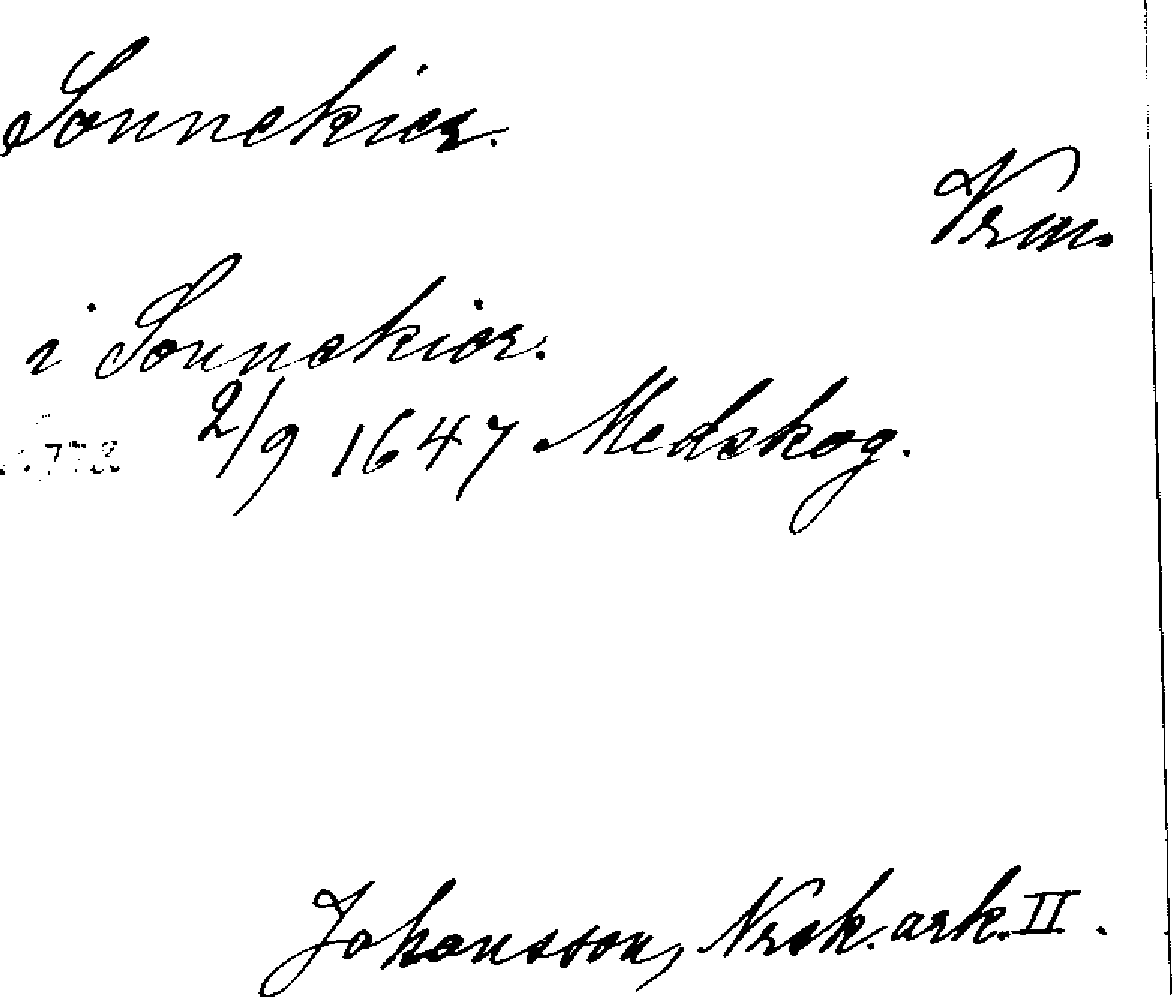 Sonnekier.
Vrm.
i Sonnekier.
2/9 1647 Medskog.
Johansson, Nrsk. ark. II.